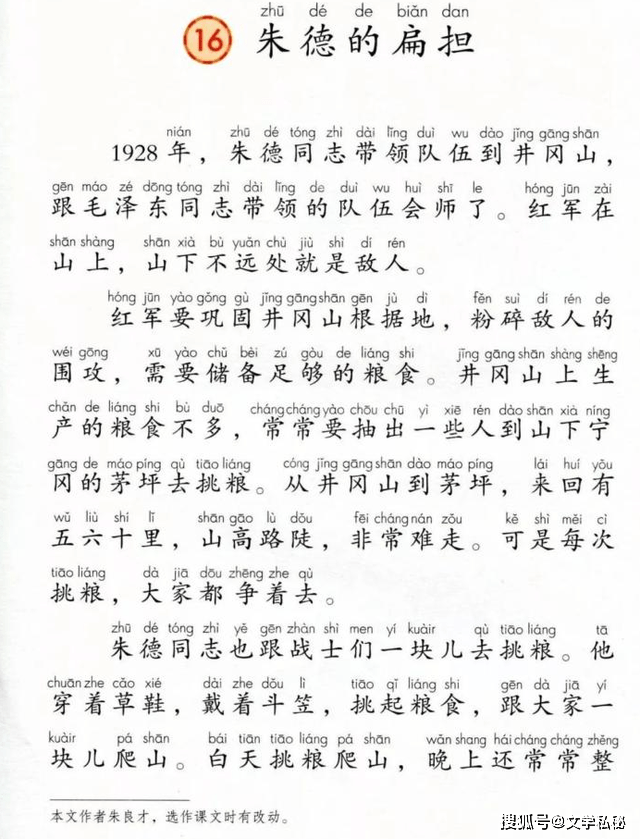 zhū dé de biǎn dan
16 朱德的扁担
nián zhū dé tóng zhì dài lǐng duì wu dào jǐng gāng shān
1928 年，朱德同志带领队伍到井冈山，
gēn máo zé dōng tóng zhì dài lǐng de duì wu huì shī le hóng jūn zài
跟毛泽东同志带领的队伍会师了。红军在
shān shàng shān xià bù yuǎn chù jiù shì dí rén
山上，山下不远处就是敌人。
hóng jūn yào gǒng gù jǐng gāng shān gēn jù dì fěn suì dí rén de
红军要巩固井冈山根据地，粉碎敌人的
wéi gōng xū yào chǔ bèi zú gòu de liáng shi jǐng gāng shān shàng shēng
围攻，需要储备足够的粮食。井冈山上生
chǎn de liáng shi bù duō cháng cháng yào chōu chū yì xiē rén dào shān xià níng
产的粮食不多，常常要抽出一些人到山下宁
gāng de máo píng qù tiāo liáng cóng jǐng gāng shān dào máo píng lái huí yǒu
冈的茅坪去挑粮。从井冈山到茅坪，来回有
wǔ liù shí lǐ shān gāo lù dǒu fēi cháng nán zǒu kě shì měi cì
五六十里，山高路陡，非常难走。可是每次
tiāo liáng dà jiā dōu zhēng zhe qù
挑粮，大家都争着去。
zhū dé tóng zhì yě gēn zhàn shì men yí kuàir qù tiāo liáng tā
朱德同志也跟战士们一块儿去挑粮。他
chuān zhe cǎo xié dài zhe dǒu lì tiāo qǐ liáng shi gēn dà jiā yí
穿着草鞋，戴着斗笠，挑起粮食，跟大家一
kuàir pá shān bái tiān tiāo liáng pá shān wǎn shang hái cháng cháng zhěng
块儿爬山。白天挑粮爬山，晚上还常常整
本文作者朱良才，选作课文时有改动。
搜狐号@文学私秘